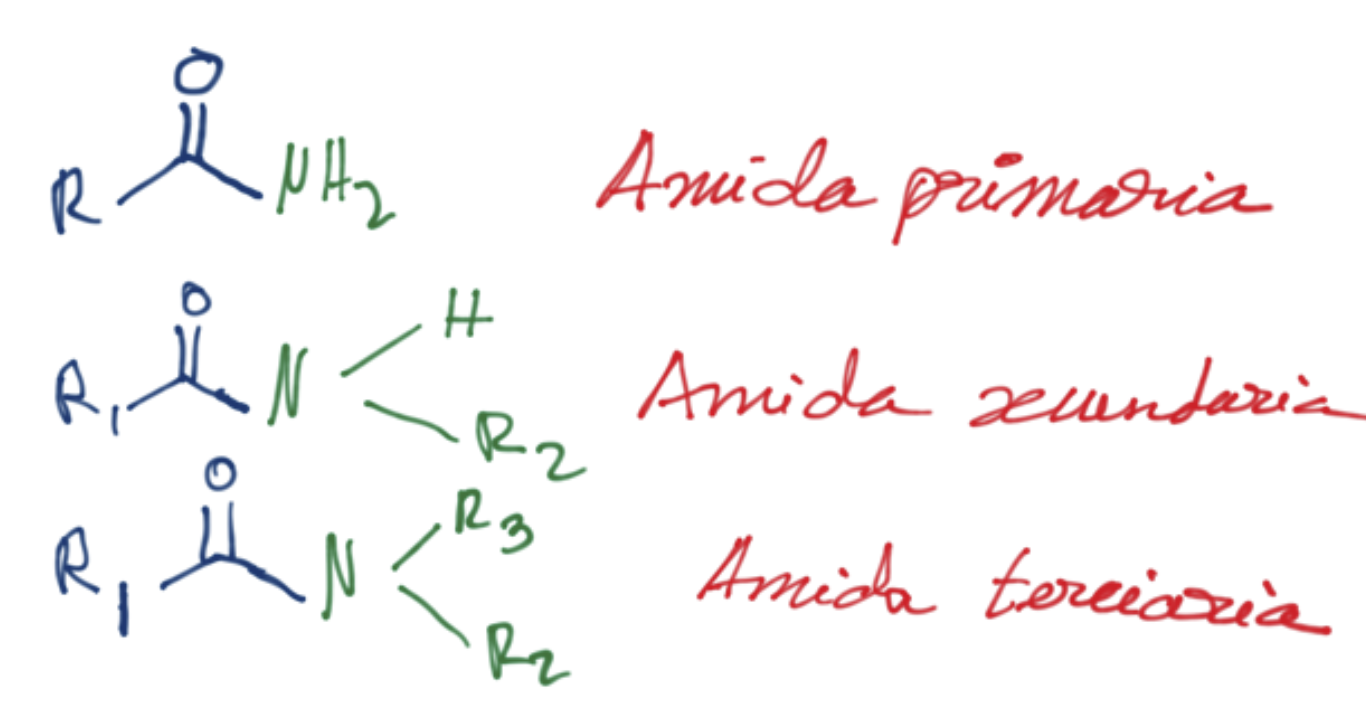 O
R NH2 Amida primaria
O
H
R1 N Amida secundaria
R2
O
R3
R1 N Amida terciaria
R2